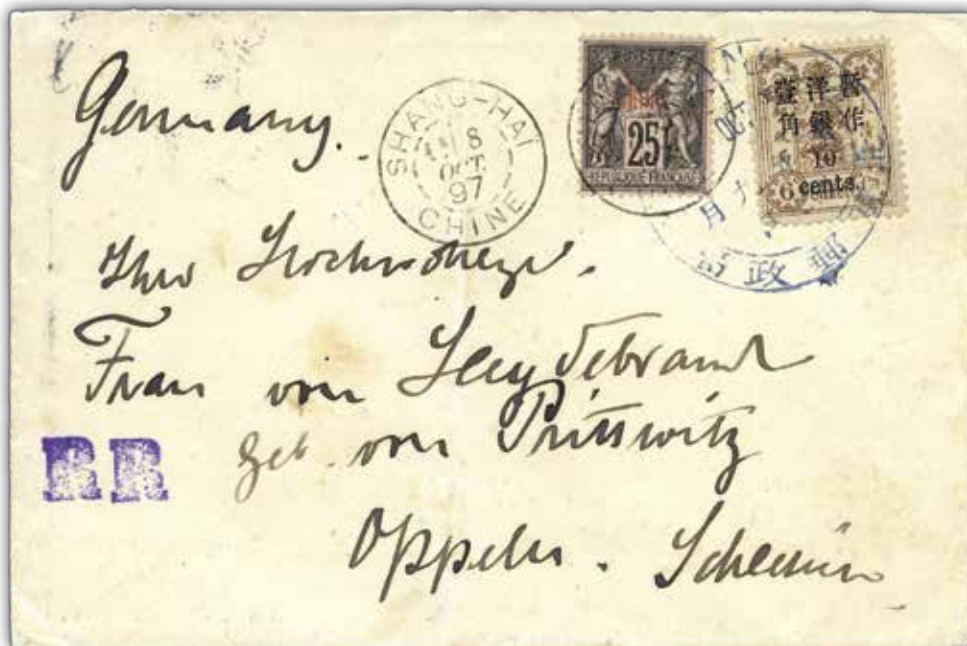 Germany.
SHANG-HAI
8
OCT.
97
CHINE
POSTES
Chine
25
REPUBLIQUE FRANÇAISE
暫作
洋銀
壹角
10
cents.
6
OCT
月
郵政局
Frau von Heydebrand
geb. von Prittwitz
RR
Oppeln. Schlesien